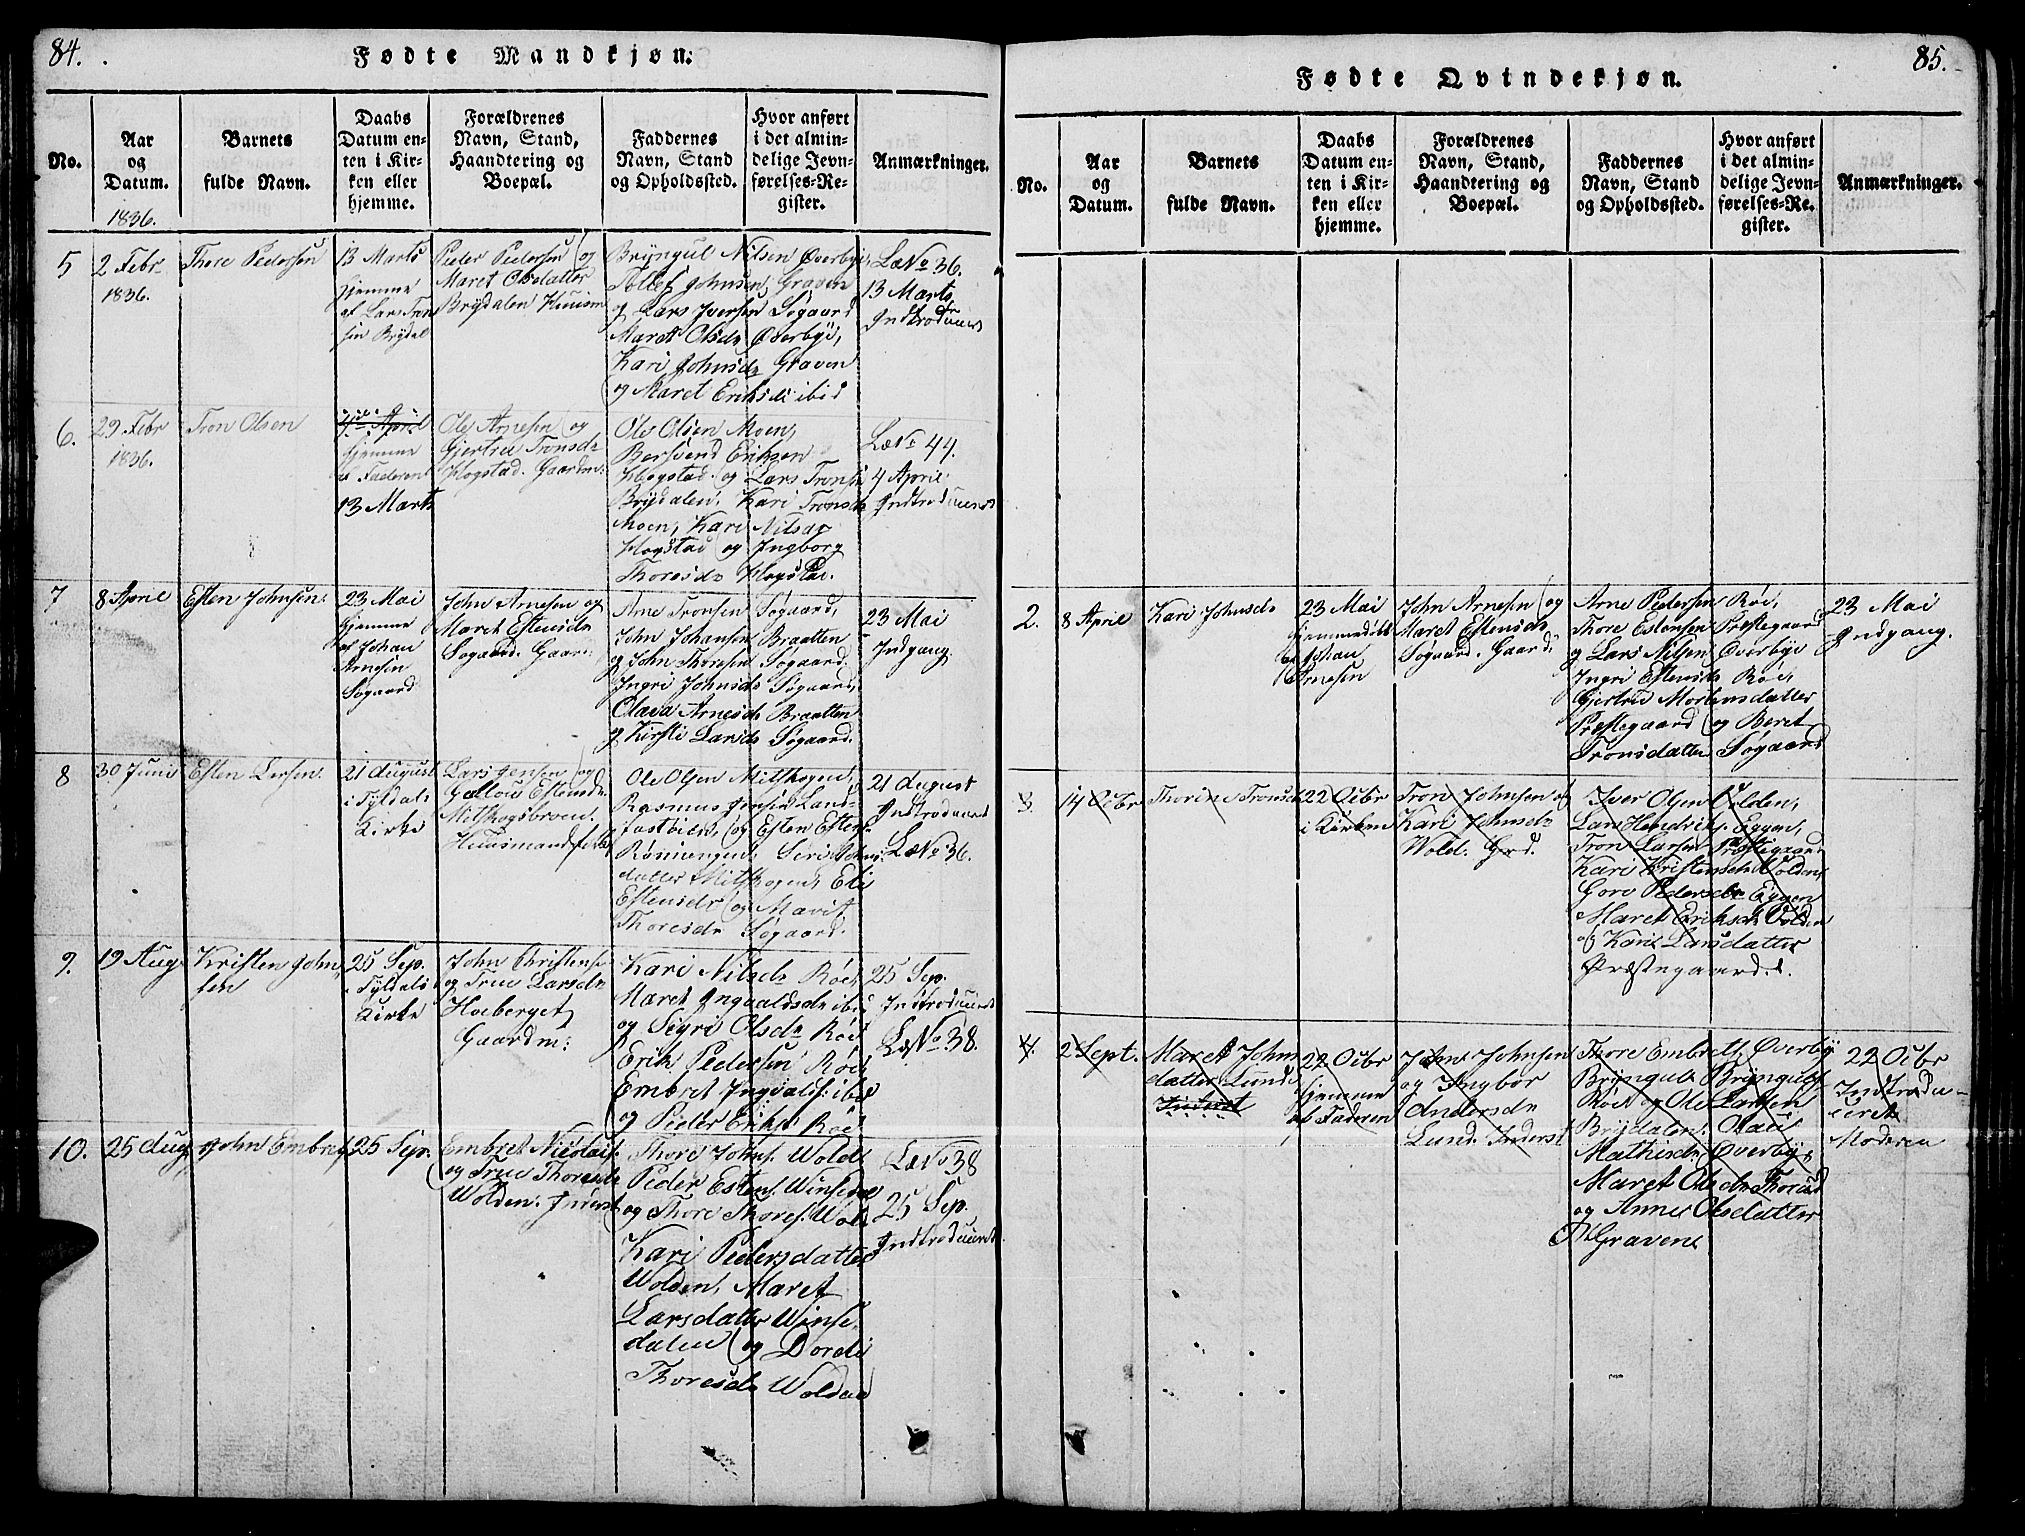 84.
Fødte Mandkjøn.
No.
Aar
og
Datum.
1836.
Barnets
fulde Navn.
Daabs
Datum en-
ten i Kir-
ken eller
hjemme.
Forældrenes
Navn, Stand,
Haandtering og
Boepæl.
Faddernes
Navn, Stand
og Opholdssted.
Hvor anført
i det almin-
delige Jevn-
førelses-Re-
gister.
Anmærkninger.
5
2 Febr
1836.
Thore Pedersen
13 Marts
hjemme
af Lars Tron
sen Brydal
Peder Pedersen og
Maret Olsdatter
Brydalen Huusm
Bryngul Nilsen Øverbye,
Tollef Johnsen, Graven
og Lars Iversen Søgaard
Maret Olsdr Øverbye,
Kari Johnsdr Graven
og Maret Eriksdr ibid
Læ No 36.
13 Marts
Indtroduceret
6.
29 Febr
1836.
Tron Olsen
4 April
hjemme
af Faderen
13 Marts
Ole Arnesen og
Gjertru Tronsdr
Hogstad. Gaardm:
Ole Olsen Moen,
Bersvend Eriksen
Hogstad og Lars Tronse
Brydalen, Kari Tronsdr
Moen, Kari Nilsdr
Hogstad og Ingborg
Thoresdr Hogstad.
Læ No 44.
4 April
Indtroduceret
7
8 April
Esten Johnsen.
23 Mai
hjemme
af Johan
Arnesen
Søgaard
John Arnesen og
Maret Estensdr
Søgaard. Gaardm:
Arne Tronsen Søgaard,
John Johansen Braatten
og John Thoresen Søgaard.
Ingri Johnsdr Søgaard,
Olava Arnesdr Braatten
og Kirsti Larsdr Søgaard.
23 Mai
Indgang.
8
30 Juni
Esten Larsen.
21 August
i Tyldals
Kirke
Lars Jensen og
Gollou Estensdr
Mitskogsbroen.
Huusmandsfolk
Ole Olsen Mitskogen,
Rasmus Jensen Land-
fastøien, og Esten Estens.
Røsmengen. Seri Johns-
datter Mitskogen, Eli
Estensdr og Marit
Thoresdr Søgaard.
21 August
Indtroduceret
Læ No 36.
9.
19 Aug.
Kristen John-
sen
25 Sep.
Tyldals
Kirke
John Christense
og Frue Larsdr
Hoeberget
Gaardm:
Kari Nilsdr Røe,
Maret Ingvaldsdr ibid
og Segri Olsdr Røe
Erik Pedersen Røe,
Embret Ingvalds: ibid
og Peder Eriks. Røe
25 Sep.
Indtroduceret
Læ No 38.
10.
25 Aug
John Embrets.
25 Sep.
Embret Nicolais.
og Frue Thoresdr
Wolden. Inderst
Thore Johns. Wold
Peder Estens. Winsedal
og Thore Thores. Wold
Kari Pedersdatter
Wolden, Maret
Larsdatter Winse-
dalen og Dordi
Thoresdr Wolden
Læ No 38
25 Sep.
Indtroduceret
85.
Fødte Qvindekjøn.
No.
Aar
og
Datum.
Barnets
fulde Navn.
Daabs
Datum en-
ten i Kir-
ken eller
hjemme.
Forældrenes
Navn, Stand,
Haandtering og
Boepæl.
Faddernes
Navn, Stand
og Opholdssted.
Hvor anført
i det almin-
delige Jevn-
førelses-Re-
gister.
Anmærkninger.
2.
8 April
Kari Johnsdr
23 Mai
hjemmedøbt
af Johan
Arnesen
John Arnesen og
Maret Estensdr
Søgaard. Gaard.
Arne Pedersen Røe,
Thore Estensen Prestegaard
og Lars Nilsen Øverbye
Ingri Estensdr Røe,
Gjertru Mortensdatter
Prestegaard og Beret
Tronsdatter Søgaard
23 Mai
Indgang.
3.
14 Octbr
Thorine Tronsdr
22 Octbr
i Kirken
Tron Johnsen og
Kari Johnsdr
Wold. Grd.
Iver Olsen Volden,
Lars Hendriks. Eggen,
Tron Larsen Prestegaard
Kari Kristensdr Volden
Goro Pedersdr Eggen
Maret Eriksdr Volden
og Kari Larsdatter
Præstegaard.
4.
2 Sept.
Maret Johns
datter Lund
Inderst
22 Octbr
hjemme
af Faderen
John Johnsen
og Ingbor
Andersdr
Lund. Inderst
Thore Embrets. Øverby
Bryngul Brynguls
Røe og Ole Larsen
Brydalen. Olau
Mathisdr Øverby,
Maret Olsdr Thorud
og Anne Olsdatter
Graven
22 Octbr
Indtrodu-
ceret
Moderen